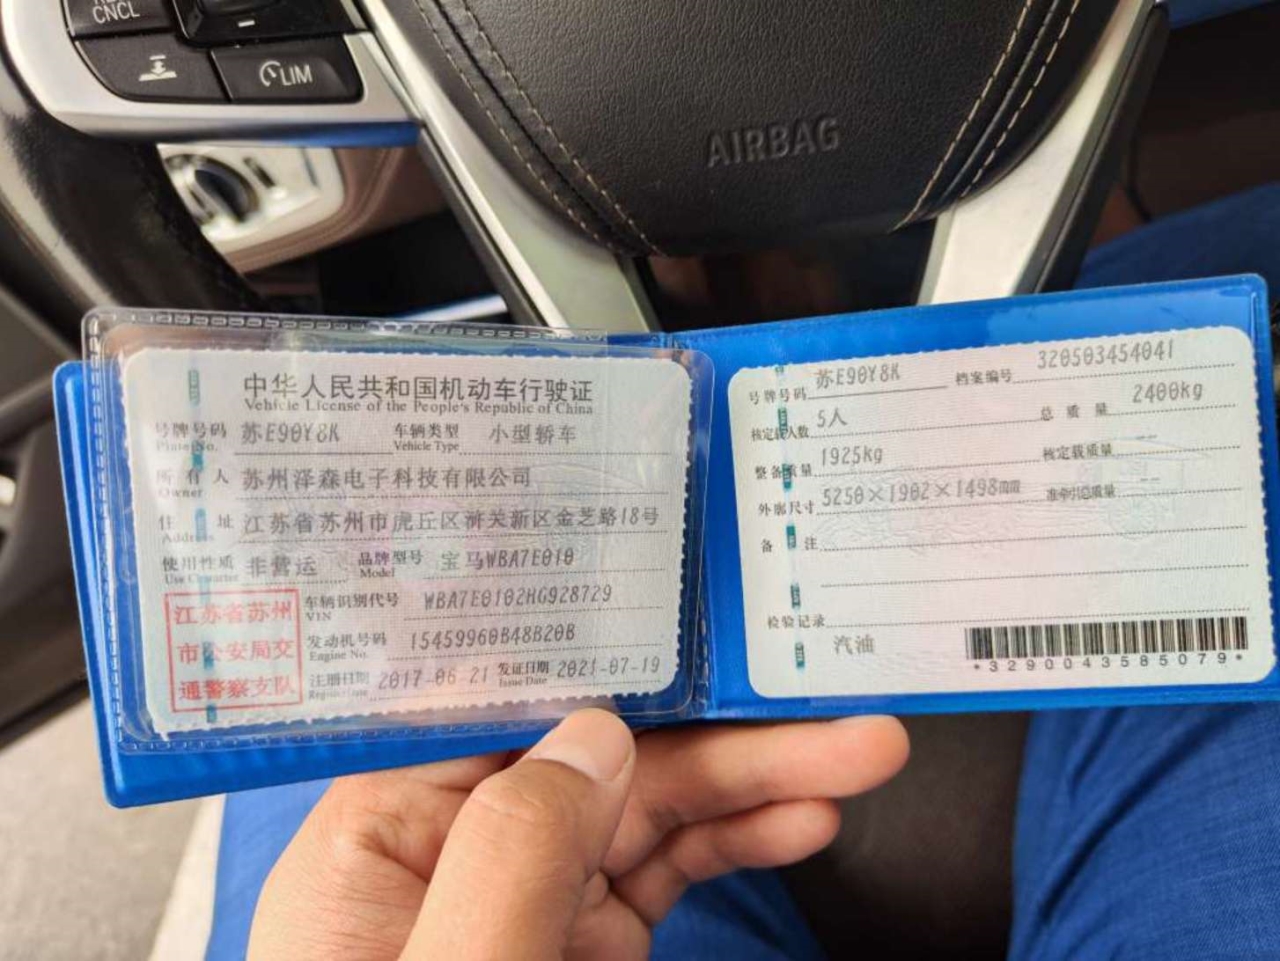 CNCL
LIM
AIRBAG
中华人民共和国机动车行驶证
Vehicle License of the People's Republic of China
号牌号码 苏E90Y8K 车辆类型 小型轿车
Plate No. Vehicle Type
所有人 苏州泽森电子科技有限公司
Owner
住址 江苏省苏州市虎丘区浒关新区金芝路18号
Address
使用性质 非营运 品牌型号 宝马WBA7E010
Use Character Model
江苏省苏州
市公安局交
通警察支队
车辆识别代号 WBA7E0102HG928729
VIN
发动机号码 15459960B48B20B
Engine No.
注册日期 2017-06-21 发证日期 2021-07-19
Register Date Issue Date
号牌号码 苏E90Y8K 档案编号 320503454041
核定载人数 5人 总质量 2400kg
整备质量 1925kg 核定载质量 --
外廓尺寸 5250×1902×1498mm 准牵引总质量 --
备注
检验记录
汽油
*3290043585079*